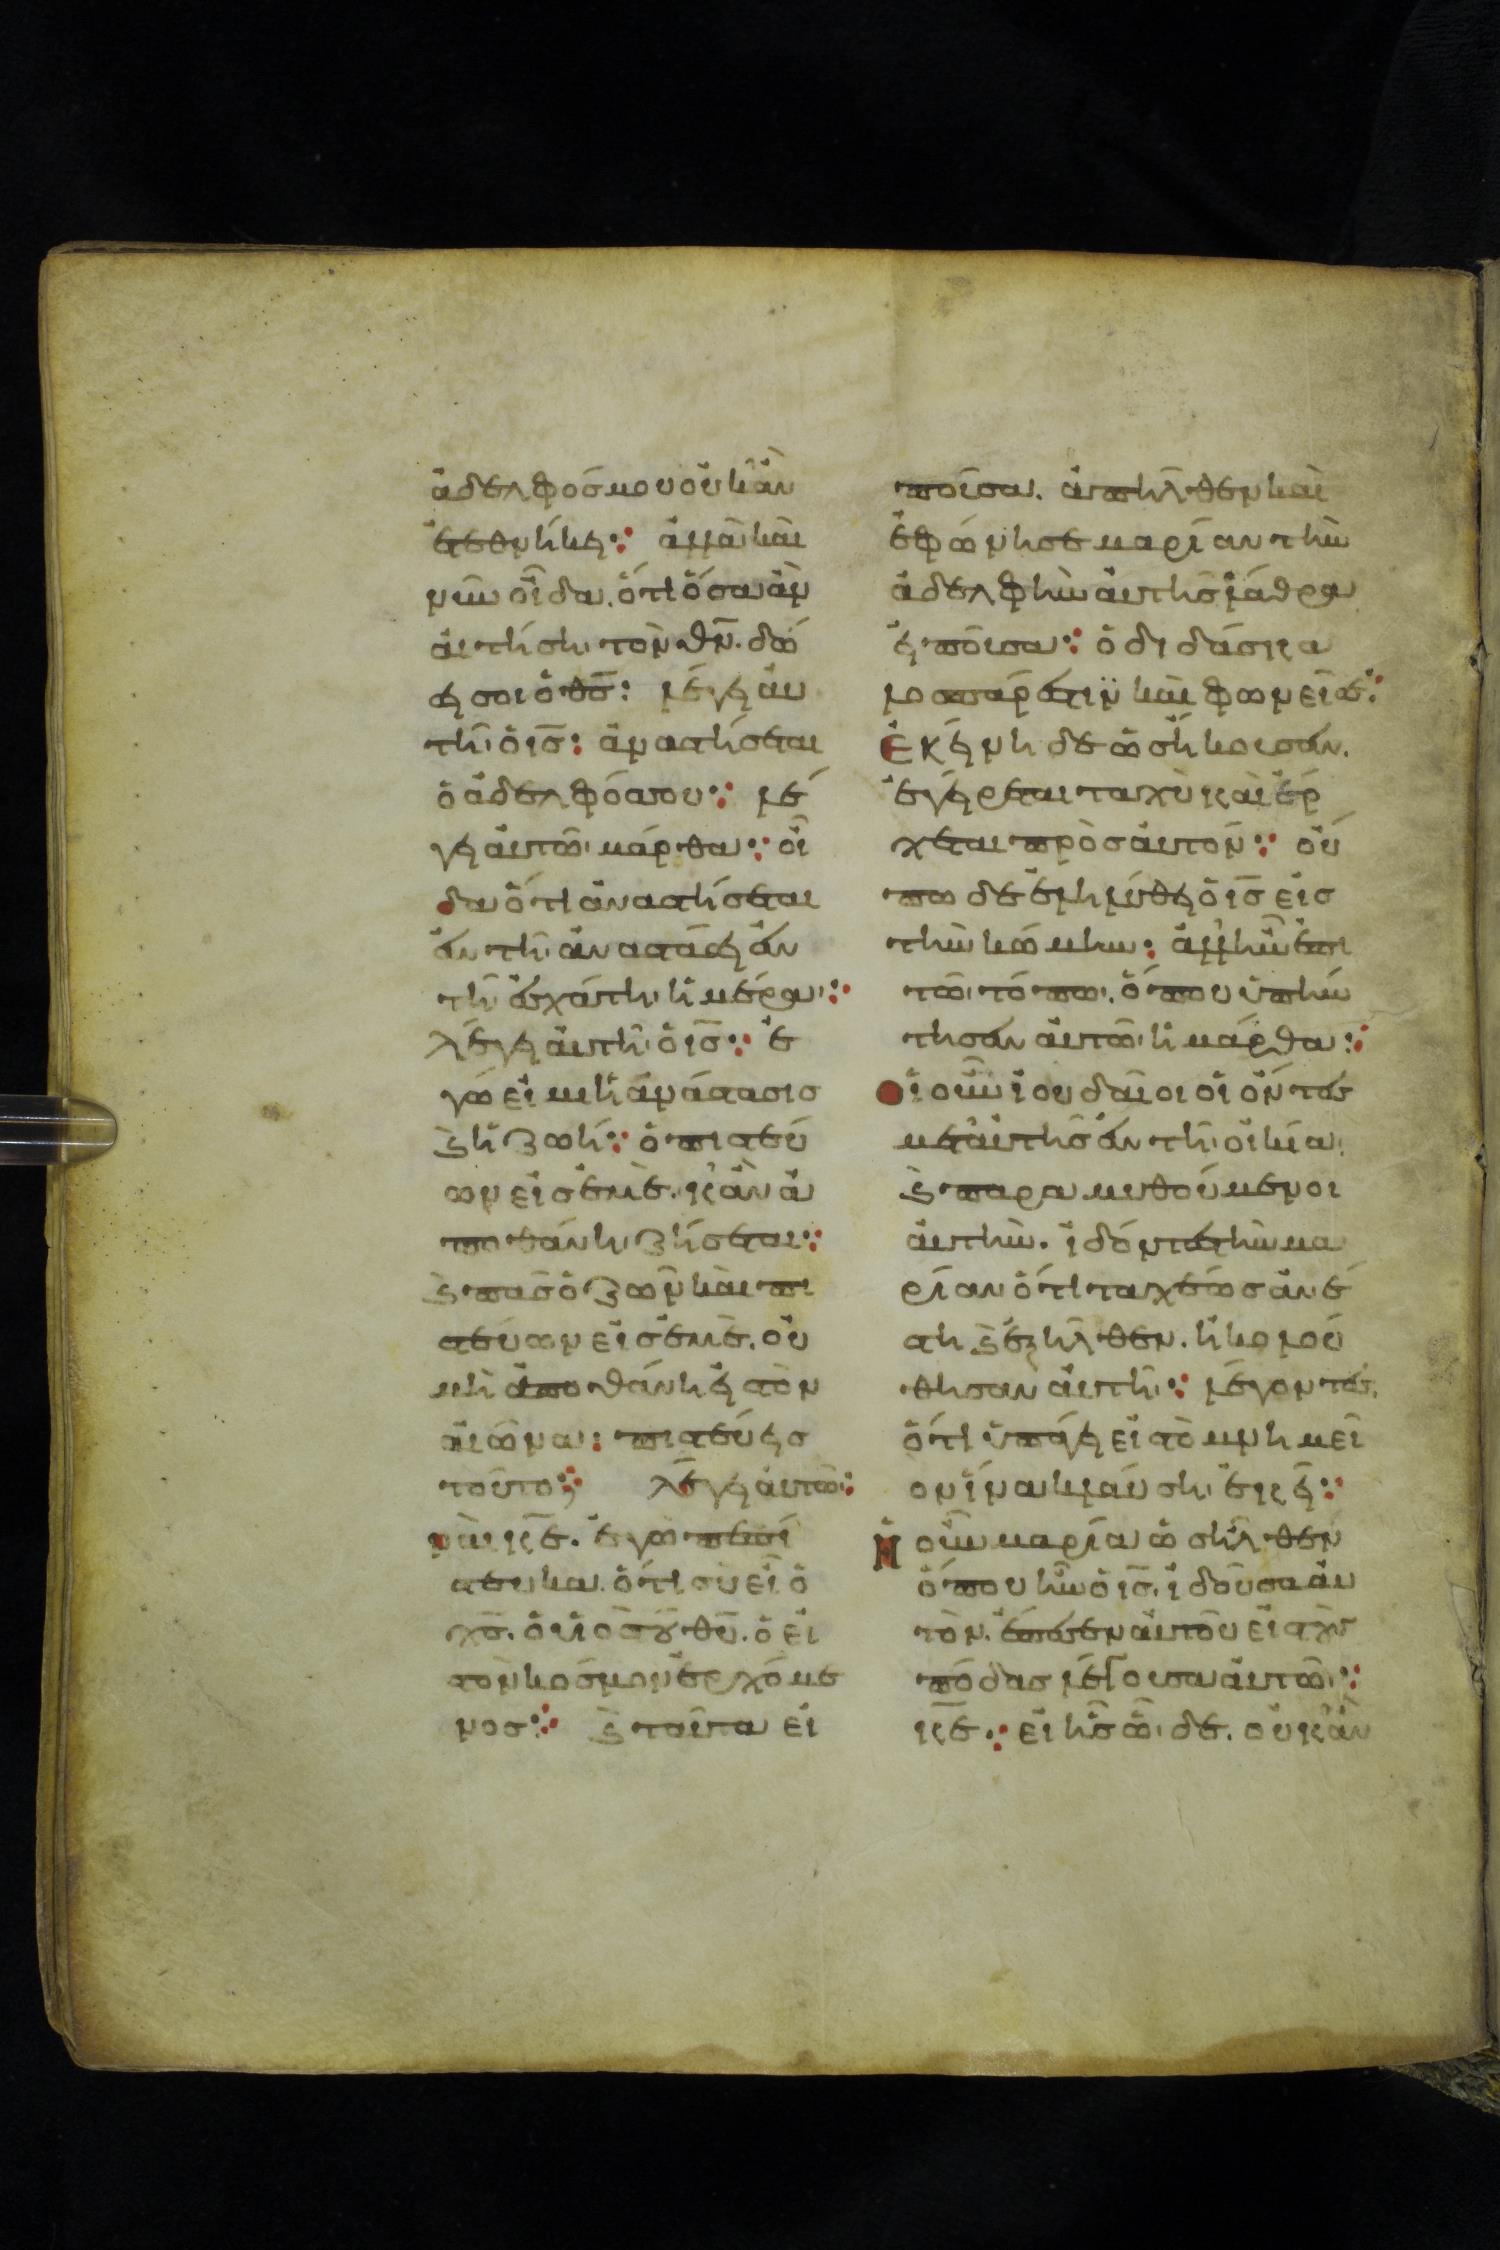 ἀδελφόσμου οὐκ ἂν
ἐτεθνήκει· ἀλλὰ καὶ
νῦν οἶδα, ὅτι ὅσα ἂν
αἰτήση τὸν θ̅ν̅. δώ
σει σοι ὁ θ̅σ̅: λέγει αὐ
τῆ ὁ ι̅σ̅: ἀναστήσεται
ὁ ἀδελφόσσου· λέ
γει αὐτῶ μάρθα· οἶ
δα ὅτι ἀναστήσεται
ἐν τῆ ἀναστάσει ἐν
τῆ ἐσχάτη ἡμέρα·
λέγει αὐτῆ ὁ ι̅σ̅· ἐ
γώ εἰμι ἡ ἀνάστασισ
ϗ ἡ ζωή· ὁ πιστεύ
ων εἰσ ἐμὲ. κἂν ἀ
ποθάνη ζήσεται·
ϗ πᾶσ ὁ ζῶν καὶ πι
στεύων εἰσ ἐμὲ. οὐ
μὴ ἀποθάνη εἰς τὸν
αἰῶνα: πιστεύεισ
τοῦτο; λέγει αὐτῶ·
ναὶ κ̅ε̅. ἐγὼ πεπί
στευκα. ὅτι σὺ εἶ ὁ
χ̅σ̅. ὁ υἱὸσ τοῦ θ̅υ̅. ὁ εἰ
στὸν κόσμον ἐρχόμε
νοσ· ϗ ταῦτα εἰ
ποῦσα. ἀπῆλθεν καὶ
ἐφώνησε μαρίαν τὴν
ἀδελφὴν αὐτῆσ λάθρα
εἰποῦσα· ὁ διδάσκα
λοσ πάρεστιν καὶ φωνεῖ σε·
Ἐκείνη δὲ ὡσ ἤκουσεν.
ἐγείρεται ταχὺ καὶ ἔρ
χεται πρὸσ αὐτόν· οὔ
πω δὲ ἐληλύθει ὁ ι̅σ̅ εἰσ
τὴν κώμην: ἀλλ' ἦν ἐπι
τῶ τόπω. ὅπου ὑπήν
τησεν αὐτῶ ἡ μάρθα·
Οἱ οὖν ἰουδαῖοι οἱ ὄντες
μετ' αὐτῆσ ἐν τῆ οἰκία.
ϗ παραμυθούμενοι
αὐτὴν. ἰδόντεσ τὴν μα
ρίαν ὅτι ταχέωσ ἀνέ
στη ϗ ἐξῆλθεν. ἠκολού
θησαν αὐτῆ· λέγοντες.
ὅτι ὑπάγει εἰσ τὸ μνημεῖ
ον ἵνα κλαύση ἐκεῖ·
Ἡ οὖν μαρία ὡσ ἦλθεν
ὅπου ἦν ὁ ι̅σ̅. ἰδοῦσα αὐ
τὸν. ἔπεσεν αὐτοῦ εἰσ τοὺς
πόδασ λέγουσα αὐτῶ·
κ̅ε̅· εἰ ἦσ ὧδε. οὐκ ἂν